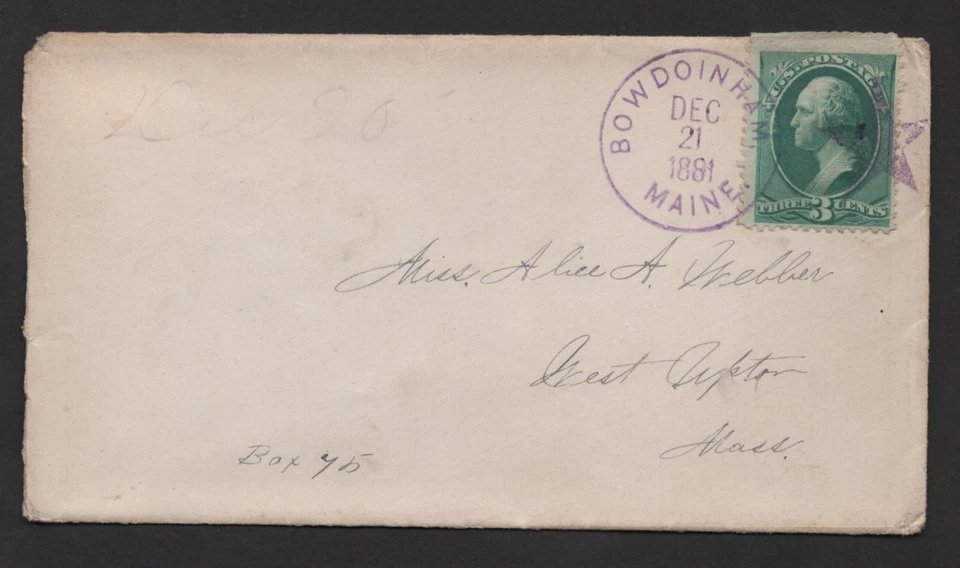 Dec 20
BOWDOINHAM
DEC
21
1881
MAINE.
U.S. POSTAGE
THREE 3 CENTS
Miss. Alice A. Webber
West Upton
Mass.
Box 75